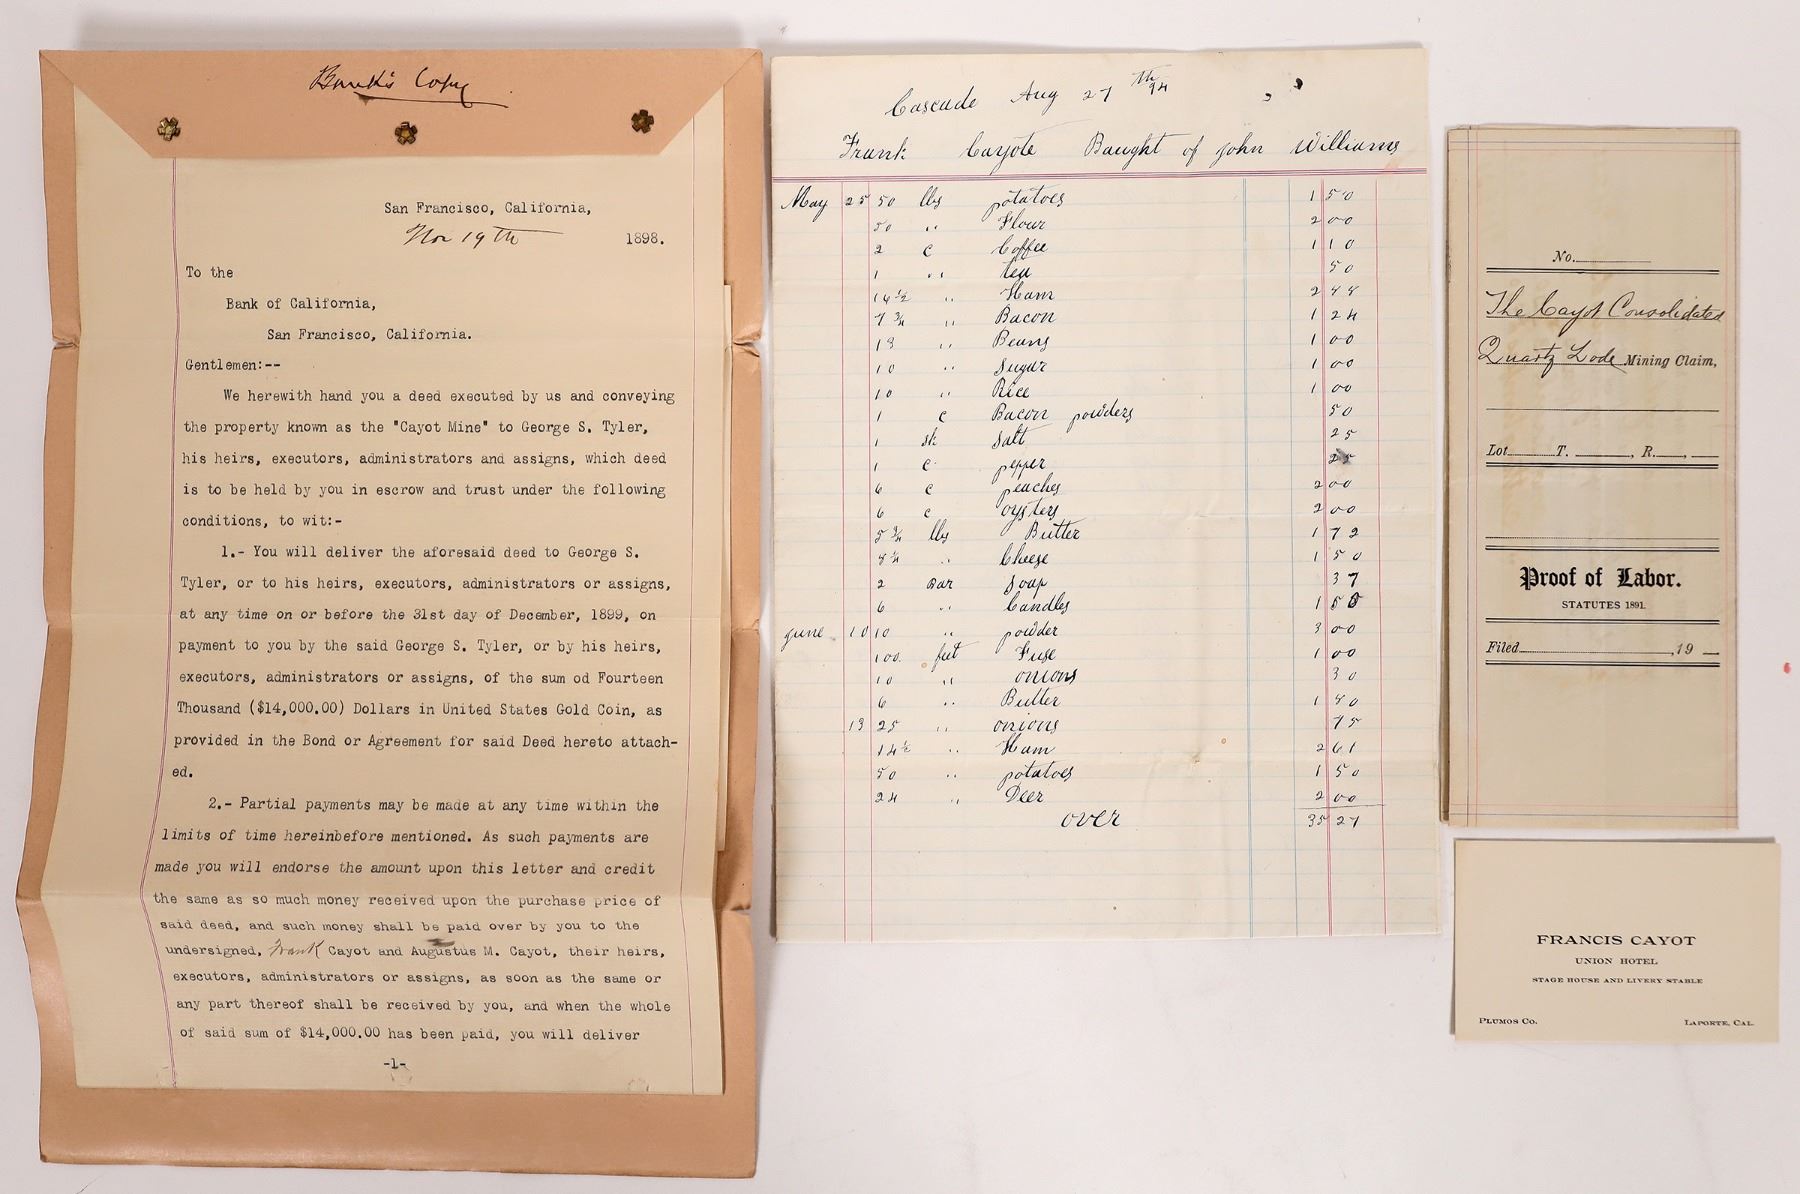 Bank's Copy
San Francisco, California,
Nov 19th 1898.
To the
Bank of California,
San Francisco, California.
Gentlemen:--
We herewith hand you a deed executed by us and conveying
the property known as the "Cayot Mine" to George S. Tyler,
his heirs, executors, administrators and assigns, which deed
is to be held by you in escrow and trust under the following
conditions, to wit:-
1.- You will deliver the aforesaid deed to George S.
Tyler, or to his heirs, executors, administrators or assigns,
at any time on or before the 31st day of December, 1899, on
payment to you by the said George S. Tyler, or by his heirs,
executors, administrators or assigns, of the sum od Fourteen
Thousand ($14,000.00) Dollars in United States Gold Coin, as
provided in the Bond or Agreement for said Deed hereto attach-
ed.
2.- Partial payments may be made at any time within the
limits of time hereinbefore mentioned. As such payments are
made you will endorse the amount upon this letter and credit
the same as so much money received upon the purchase price of
said deed, and such money shall be paid over by you to the
undersigned, Frank Cayot and Augustus M. Cayot, their heirs,
executors, administrators or assigns, as soon as the same or
any part thereof shall be received by you, and when the whole
of said sum of $14,000.00 has been paid, you will deliver
-1-
Cascade Aug 27th 94
Frank Cayote Baught of John Williams
May 25 50 lbs potatoes 1 50
50 " Flour 2 00
2 c Coffee 1 10
1 " tea 50
14 1/2 " Ham 2 88
7 3/4 " Bacon 1 24
18 " Beans 1 00
10 " Sugar 1 00
10 " Rice 1 00
1 c Bacon powders 50
1 sk salt 25
1 c pepper 25
6 c peaches 2 00
6 c oysters 2 00
5 3/4 lbs Butter 1 72
8 1/4 " Cheese 1 50
2 Bar soap 37
6 " Candles 1 50
June 10 10 " powder 3 00
100 feet Fuse 1 00
10 " onions 30
6 " Butter 1 80
13 25 " onions 75
14 1/2 " Ham 2 61
50 " potatoes 1 50
24 " Deer 2 00
over 35 27
No.
The Cayot Consolidated
Quartz Lode Mining Claim,
Lot T. , R. ,
Proof of Labor.
STATUTES 1891.
Filed , 19
FRANCIS CAYOT
UNION HOTEL
STAGE HOUSE AND LIVERY STABLE
PLUMOS CO. LAPORTE, CAL.